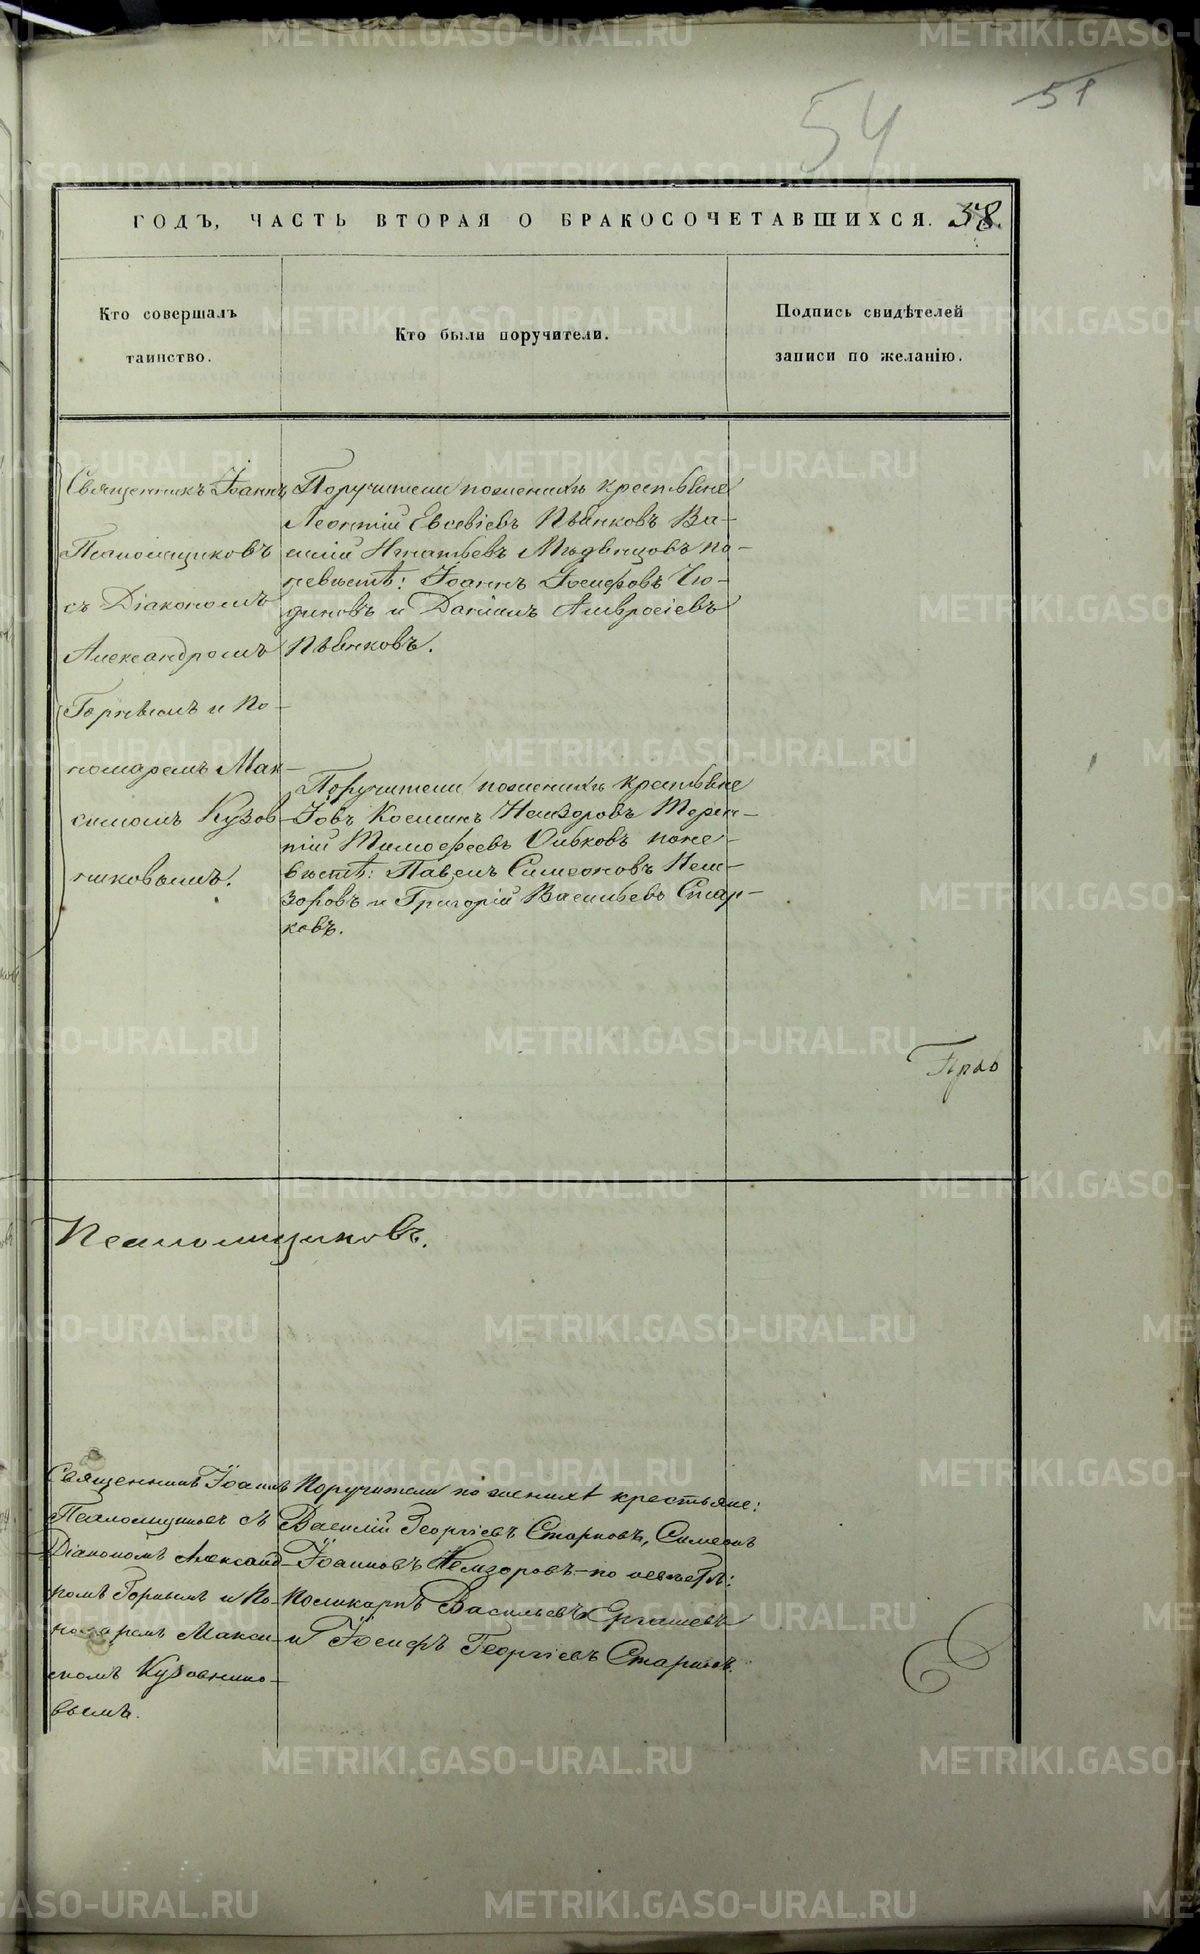 54
51
ГОДЪ, ЧАСТЬ ВТОРАЯ О БРАКОСОЧЕТАВШИХСЯ. 58.
Кто совершалъ
таинство.
Кто были поручители.
Подпись свидѣтелей
записи по желанію.
Священникъ Іоаннъ
Псаломщиковъ
съ Діакономъ
Александромъ
и По-
номаремъ Мак-
симомъ Кузов-
никовымъ.
Поручители по женихѣ крестьяне
Леонтій Евсевіевъ Пьянковъ Ва-
силій Игнатьевъ по
невѣстѣ: Іоаннъ Іосифовъ Чю-
диновъ и Даніилъ Амвросіевъ
Пьянковъ.
Поручители по женихѣ крестьяне
Іовъ Косминъ Немзоровъ Терен-
тій Тимофеевъ по не-
вѣстѣ: Павелъ Симеоновъ Нем-
зоровъ и Григорій Васильевъ Стар-
ковъ.
Псаломщиковъ.
Священникъ Іоаннъ
Псаломщиковъ съ
Діакономъ Александ-
ромъ и По-
номаремъ Макси-
момъ Кузовнико-
вымъ.
Поручители по женихѣ крестьяне:
Василій Георгіевъ Старковъ, Симеонъ
Іоанновъ Немзоровъ - по невѣстѣ:
Поликарпъ Васильевъ
и Іосифъ Георгіевъ Старковъ.
METRIKI.GASO-URAL.RU